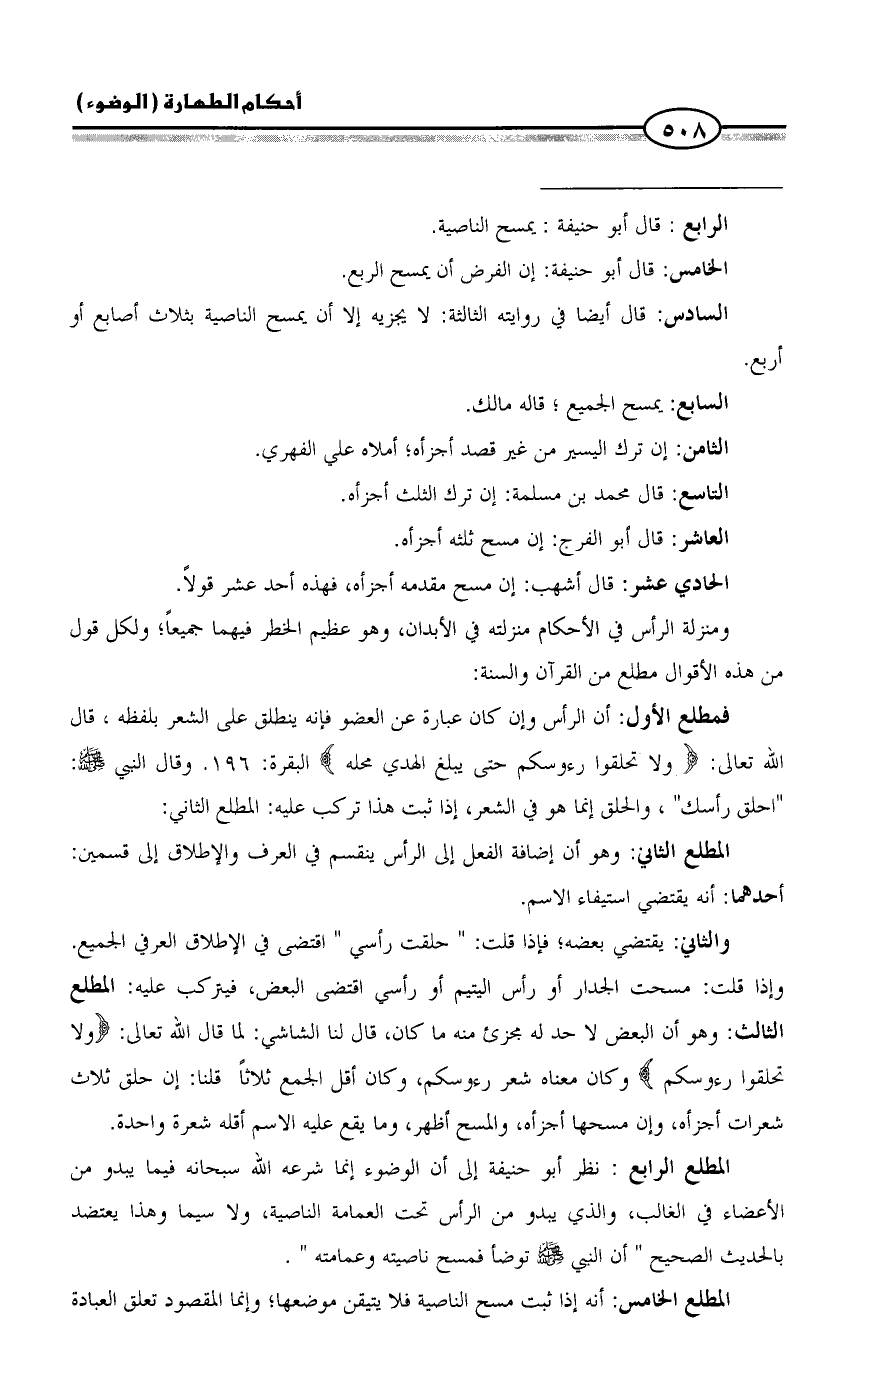 أحكام الطهارة (الوضوء)
٥٠٨
الرابع : قال أبو حنيفة : يمسح الناصية.
الخامس: قال أبو حنيفة: إن الفرض أن يمسح الربع.
السادس: قال أيضا في روايته الثالثة: لا يجزيه إلا أن يمسح الناصية بثلاث أصابع أو
أربع.
السابع: يمسح الجميع ؛ قاله مالك.
الثامن: إن ترك اليسير من غير قصد أجزأه؛ أملاه علي الفهري.
التاسع: قال محمد بن مسلمة: إن ترك الثلث أجزأه.
العاشر: قال أبو الفرج: إن مسح ثلثه أجزأه.
الحادي عشر: قال أشهب: إن مسح مقدمه أجزأه، فهذه أحد عشر قولاً.
ومنزلة الرأس في الأحكام منزلته في الأبدان، وهو عظيم الخطر فيهما جميعاً؛ ولكل قول
من هذه الأقوال مطلع من القرآن والسنة:
فمطلع الأول: أن الرأس وإن كان عبارة عن العضو فإنه ينطلق على الشعر بلفظه ، قال
الله تعالى: ﴿ ولا تحلقوا رءوسكم حتى يبلغ الهدي محله ﴾ البقرة: ١٩٦. وقال النبي ﷺ:
"احلق رأسك" ، والحلق إنما هو في الشعر، إذا ثبت هذا تركب عليه: المطلع الثاني:
المطلع الثاني: وهو أن إضافة الفعل إلى الرأس ينقسم في العرف والإطلاق إلى قسمين:
أحدهما: أنه يقتضي استيفاء الاسم.
والثاني: يقتضي بعضه؛ فإذا قلت: " حلقت رأسي " اقتضى في الإطلاق العرفي الجميع.
وإذا قلت: مسحت الجدار أو رأس اليتيم أو رأسي اقتضى البعض، فيتركب عليه: المطلع
الثالث: وهو أن البعض لا حد له مجزئ منه ما كان، قال لنا الشاشي: لما قال الله تعالى: ﴿ولا
تحلقوا رءوسكم ﴾ وكان معناه شعر رءوسكم، وكان أقل الجمع ثلاثاً قلنا: إن حلق ثلاث
شعرات أجزأه، وإن مسحها أجزأه، والمسح أظهر، وما يقع عليه الاسم أقله شعرة واحدة.
المطلع الرابع : نظر أبو حنيفة إلى أن الوضوء إنما شرعه الله سبحانه فيما يبدو من
الأعضاء في الغالب، والذي يبدو من الرأس تحت العمامة الناصية، ولا سيما وهذا يعتضد
بالحديث الصحيح " أن النبي ﷺ توضأ فمسح ناصيته وعمامته " .
المطلع الخامس: أنه إذا ثبت مسح الناصية فلا يتيقن موضعها؛ وإنما المقصود تعلق العبادة